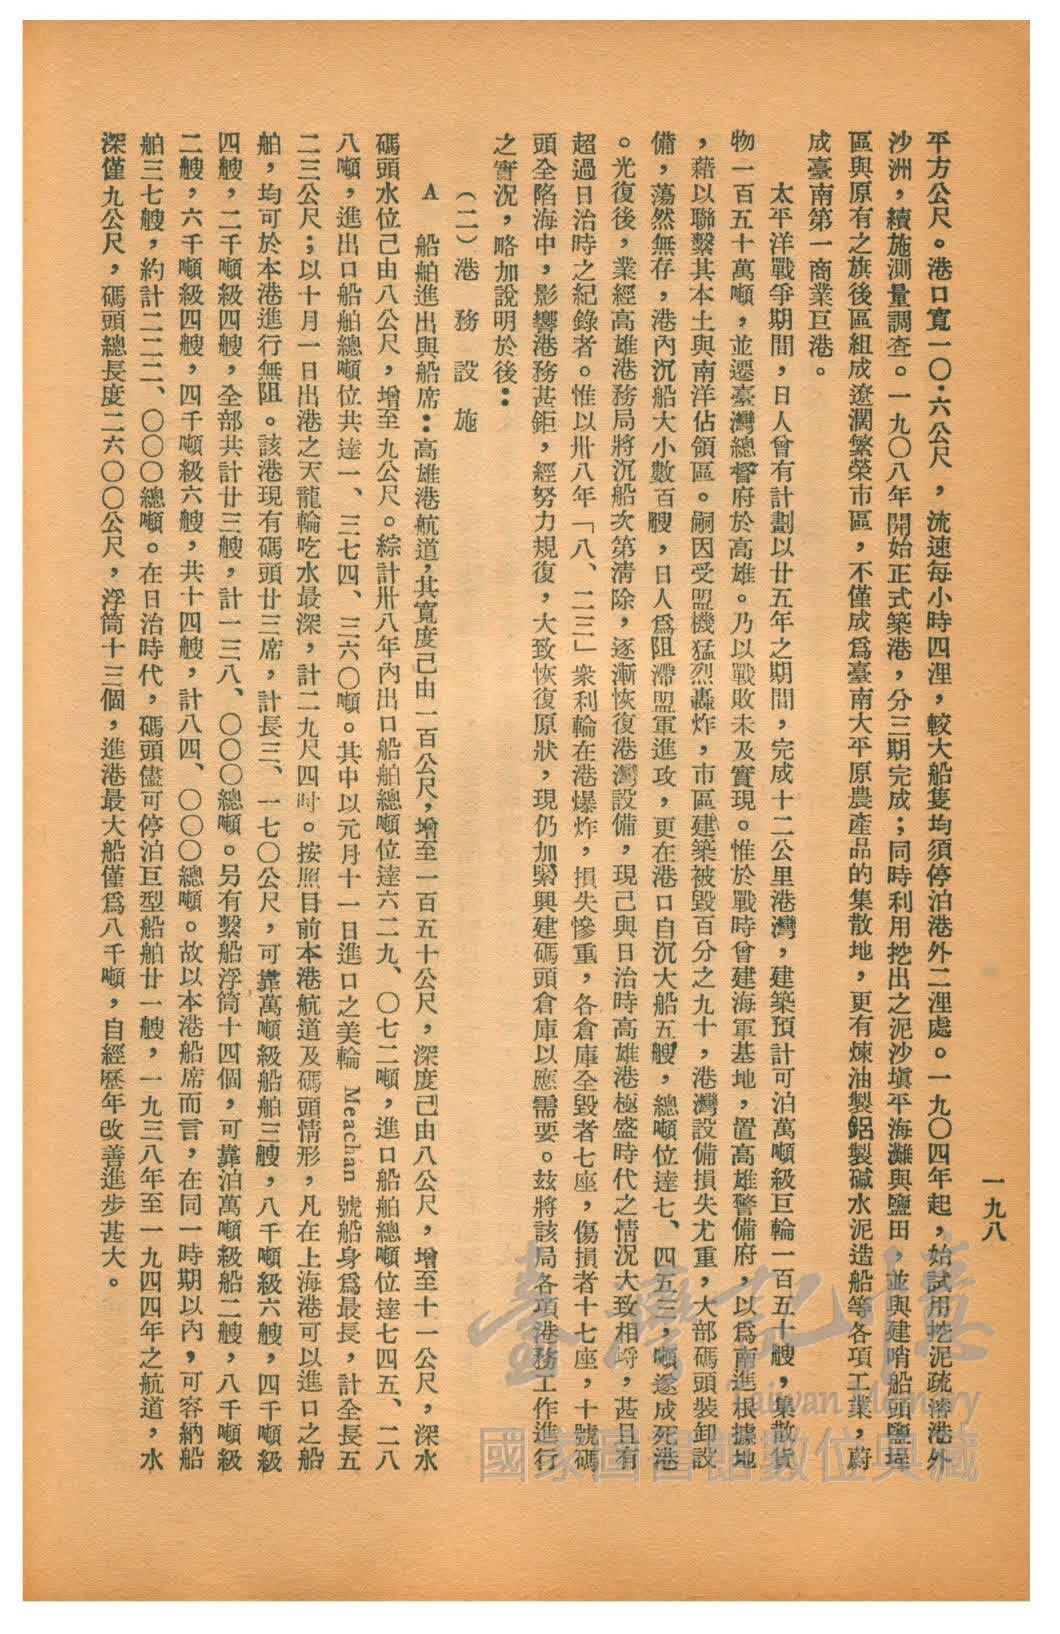 一九八
平方公尺。港口寬一〇・六公尺,流速每小時四浬,較大船隻均須停泊港外二浬處。一九〇四年起,始試用挖泥疏濬港外
沙洲,續施測量調查。一九〇八年開始正式築港,分三期完成;同時利用挖出之泥沙塡平海灘與鹽田,並與建哨船頭鹽埕
區與原有之旗後區組成遼濶繁榮市區,不僅成爲臺南大平原農產品的集散地,更有煉油製鋁製碱水泥造船等各項工業,蔚
成臺南第一商業巨港。
太平洋戰爭期間,日人曾有計劃以廿五年之期間,完成十二公里港灣,建築預計可泊萬噸級巨輪一百五十艘,集散貨
物一百五十萬噸,並遷臺灣總督府於高雄。乃以戰敗未及實現。惟於戰時曾建海軍基地,置高雄警備府,以爲南進根據地
,藉以聯繫其本土與南洋佔領區。嗣因受盟機猛烈轟炸,市區建築被毀百分之九十,港灣設備損失尤重,大部碼頭裝卸設
備,蕩然無存,港內沉船大小數百艘,日人爲阻滯盟軍進攻,更在港口自沉大船五艘,總噸位達七、四五三,噸遂成死港
。光復後,業經高雄港務局將沉船次第清除,逐漸恢復港灣設備,現已與日治時高雄港極盛時代之情況大致相埒,甚且有
超過日治時之紀錄者。惟以卅八年「八、二三」衆利輪在港爆炸,損失慘重,各倉庫全毀者七座,傷損者十七座,十號碼
頭全陷海中,影響港務甚鉅,經努力規復,大致恢復原狀,現仍加緊興建碼頭倉庫以應需要。玆將該局各項港務工作進行
之實況,略加說明於後:
(二)港務設施
A 船舶進出與船席:高雄港航道,其寬度已由一百公尺,增至一百五十公尺,深度已由八公尺,增至十一公尺,深水
碼頭水位已由八公尺,增至九公尺。綜計卅八年內出口船舶總噸位達六二九、〇七二噸,進口船舶總噸位達七四五、二八
八噸,進出口船舶總噸位共達一、三七四、三六〇噸。其中以元月十一日進口之美輪 Meachan 號船身爲最長,計全長五
二三公尺;以十月一日出港之天龍輪吃水最深,計二九尺四吋。按照目前本港航道及碼頭情形,凡在上海港可以進口之船
舶,均可於本港進行無阻。該港現有碼頭廿三席,計長三、一七〇公尺,可靠萬噸級船舶三艘,八千噸級六艘,四千噸級
四艘,二千噸級四艘,全部共計廿三艘,計一三八、〇〇〇總噸。另有繫船浮筒十四個,可靠泊萬噸級船二艘,八千噸級
二艘,六千噸級四艘,四千噸級六艘,共十四艘,計八四、〇〇〇總噸。故以本港船席而言,在同一時期以內,可容納船
舶三七艘,約計二二二、〇〇〇總噸。在日治時代,碼頭儘可停泊巨型船舶廿一艘,一九三八年至一九四四年之航道,水
深僅九公尺,碼頭總長度二六〇〇公尺,浮筒十三個,進港最大船僅爲八千噸,自經歷年改善進步甚大。
臺灣記憶
Taiwan Memory
國家圖書館數位典藏